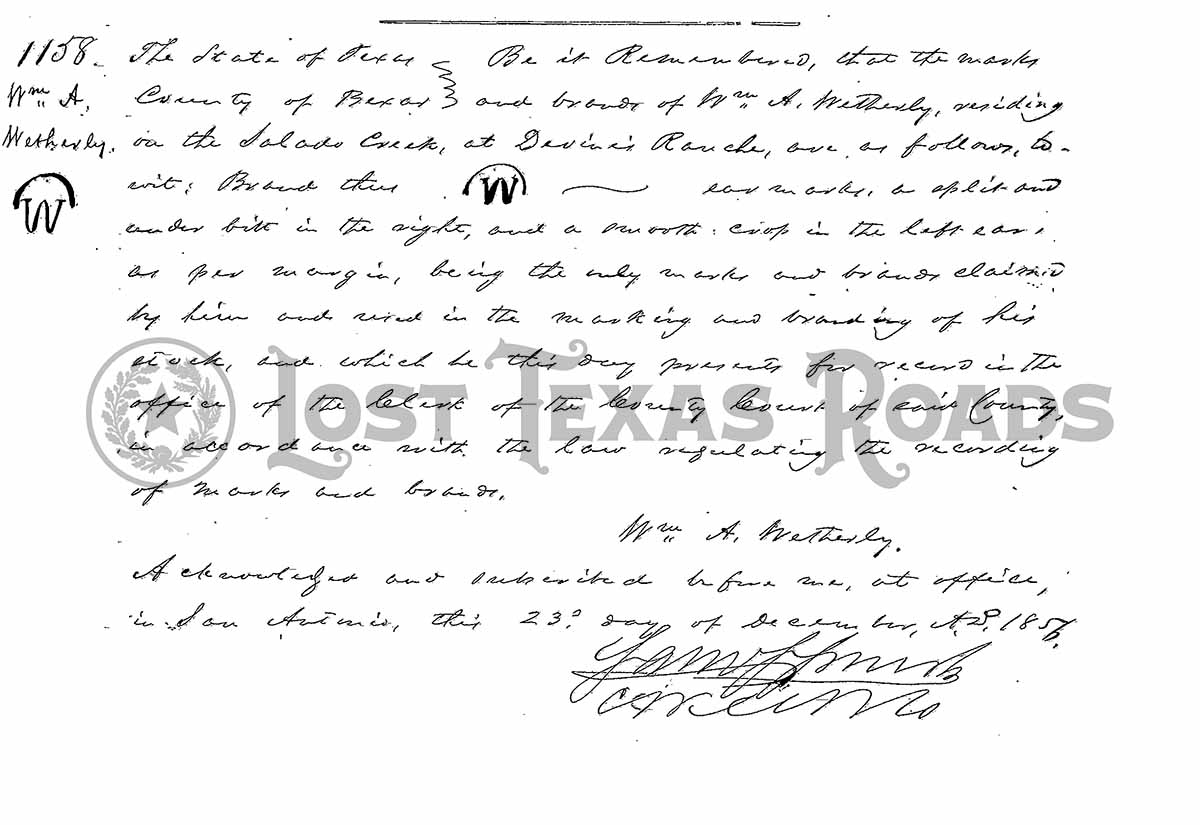 1158. The State of Texas } Be it Remembered, that the marks
Wm A. County of Bexar } and brands of Wm A. Wetherly, residing
Wetherly. on the Salado Creek, at Devine's Ranche, are as follows, to-
W wit: Brand thus W ear marks, a split and
under bitt in the right, and a smooth crop in the left ear,
as per margin, being the only marks and brands claimed
by him and used in the marking and branding of his
stock, and which he this day presents for record in the
office of the Clerk of the County Court of said County,
in accordance with the law regulating the recording
of marks and brands.
LOST TEXAS ROADS
Wm A. Wetherly.
Acknowledged and subscribed before me, at office,
in San Antonio, this 23d day of December, A.D. 1856.
Sam S. Smith